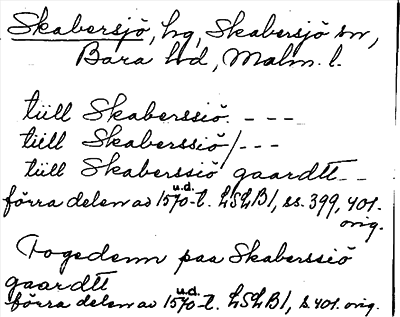 Skabersjö, hg, Skabersjö sn,
Bara hd, Malm. l.
tiill Skaberssiö. - - -
tiill Skaberssiö/ - - -
tiill Skaberssiö gaardtt - -
förra delen av 1570-t. LSLB1, ss. 399, 401.
u.d.
orig.
Fogedenn paa Skaberssiö
gaardtt
förra delen av 1570-t. LSLB1, s. 401. orig.
u.d.